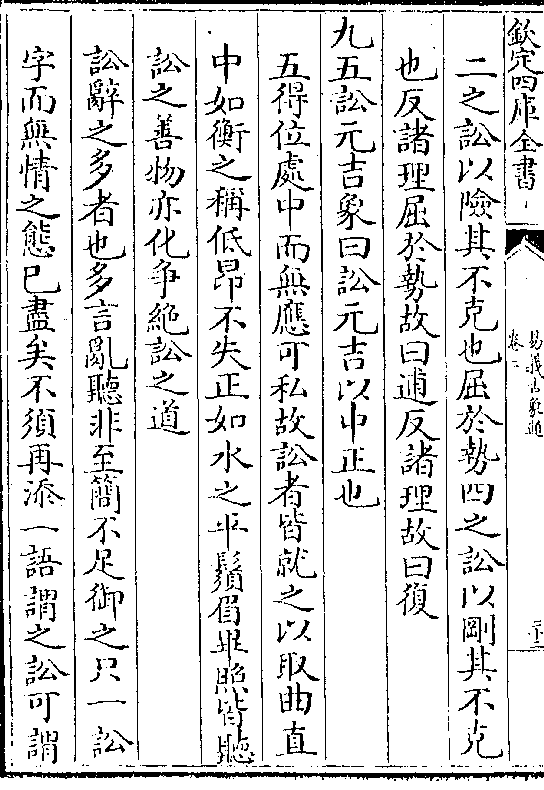 欽定四庫全書
易義古象通
卷二
二之訟以險其不克也屈於勢四之訟以剛其不克
也反諸理屈於勢故曰逋反諸理故曰復
九五訟元吉象曰訟元吉以中正也
五得位處中而無應可私故訟者皆就之以取曲直
中如衡之稱低昂不失正如水之平鬚眉畢照皆聽
訟之善物亦化爭絶訟之道
訟辭之多者也多言亂聽非至簡不足御之只一訟
字而無情之態已盡矣不須再添一語謂之訟可謂